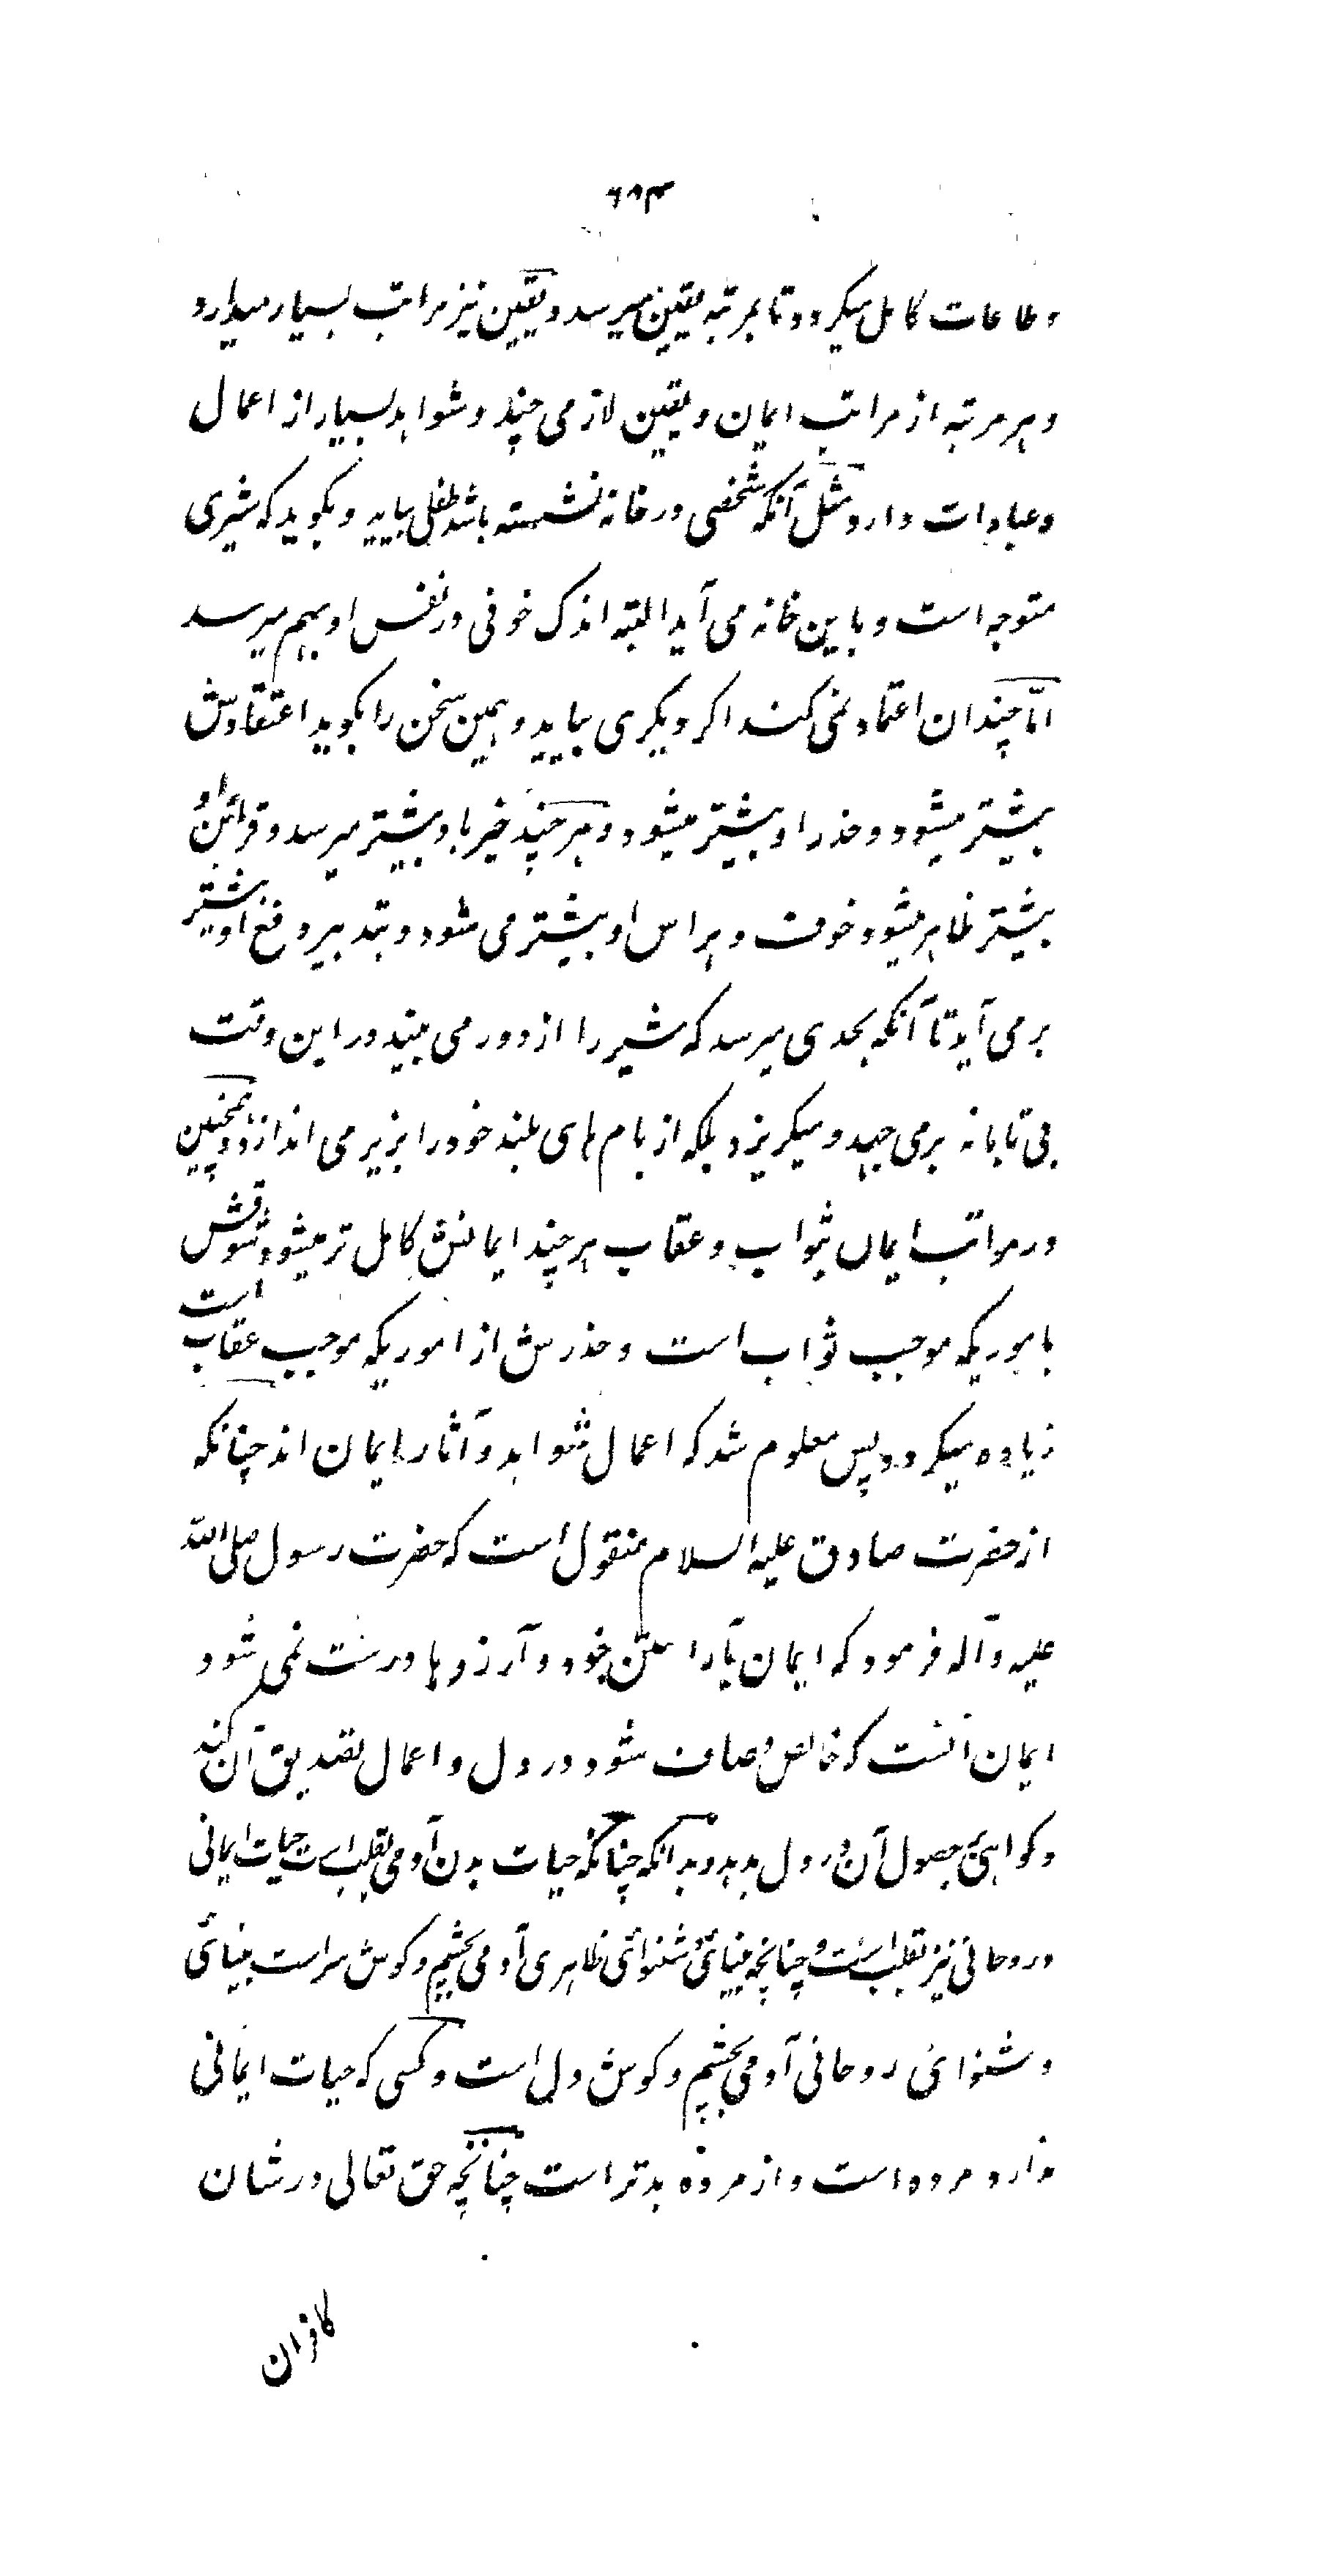 وطاعات کامل میکردد تا بمرتبه یقین میرسد و یقین نیز مراتب بسیار میدارد
و هر مرتبه از مراتب ایمان و یقین لازمی چند و شواهد بسیار از اعمال
و عبادات دارد مثل آنکه شخصی در خانه نشسته باشد طفلی بیاید و بکوید که شیری
متوجه است و باین خانه می آید البته اندک خوفی در نفس او بهم میرسد
امّا چندان اعتماد نمی کند اکر دیکری بیاید و همین سخن را بکوید اعتقادش
بیشتر میشود و حذر او بیشتر میشود و هر چند خبر باو بیشتر میرسد و قرائن او
بیشتر ظاهر میشود خوف و هراس او بیشتر می شود و بتدبیر دفع او بیشتر
بر می آید تا آنکه بحدی میرسد که شیر را از دور می بیند در این وقت
بی تابانه برمی جهد و میکریزد بلکه از بام های بلند خود را بزیر می اندازد و همچنین
در مراتب ایمان بثواب و عقاب هر چند ایمانش کامل تر میشود شوقش
بامور یکه موجب ثواب است و حذرش از امور یکه موجب عقاب است
زیاده میکردد پس معلوم شد که اعمال شواهد و آثار ایمان اند چنانکه
از حضرت صادق علیه السلام منقول است که حضرت رسول صلی الله
علیه و آله فرمود که ایمان بآراستن خود و آرزوها درست نمی شود
ایمان آنست که خالص و صاف شود در دل و اعمال تصدیق آن کند
و کواهی بحصول آن در دل بدهد و بدانکه چنانکه حیات بدن آدمی بقلب است حیات ایمانی
و روحانی نیز بقلب است و چنانچه بینائی و شنوائی ظاهری آدمی بچشم و کوش سر است بینائی
و شنوائی روحانی آدمی بچشم و کوش دل است و کسی که حیات ایمانی
ندارد مرده است و از مرده بدتر است چنانچه حق تعالی در شان
کافران